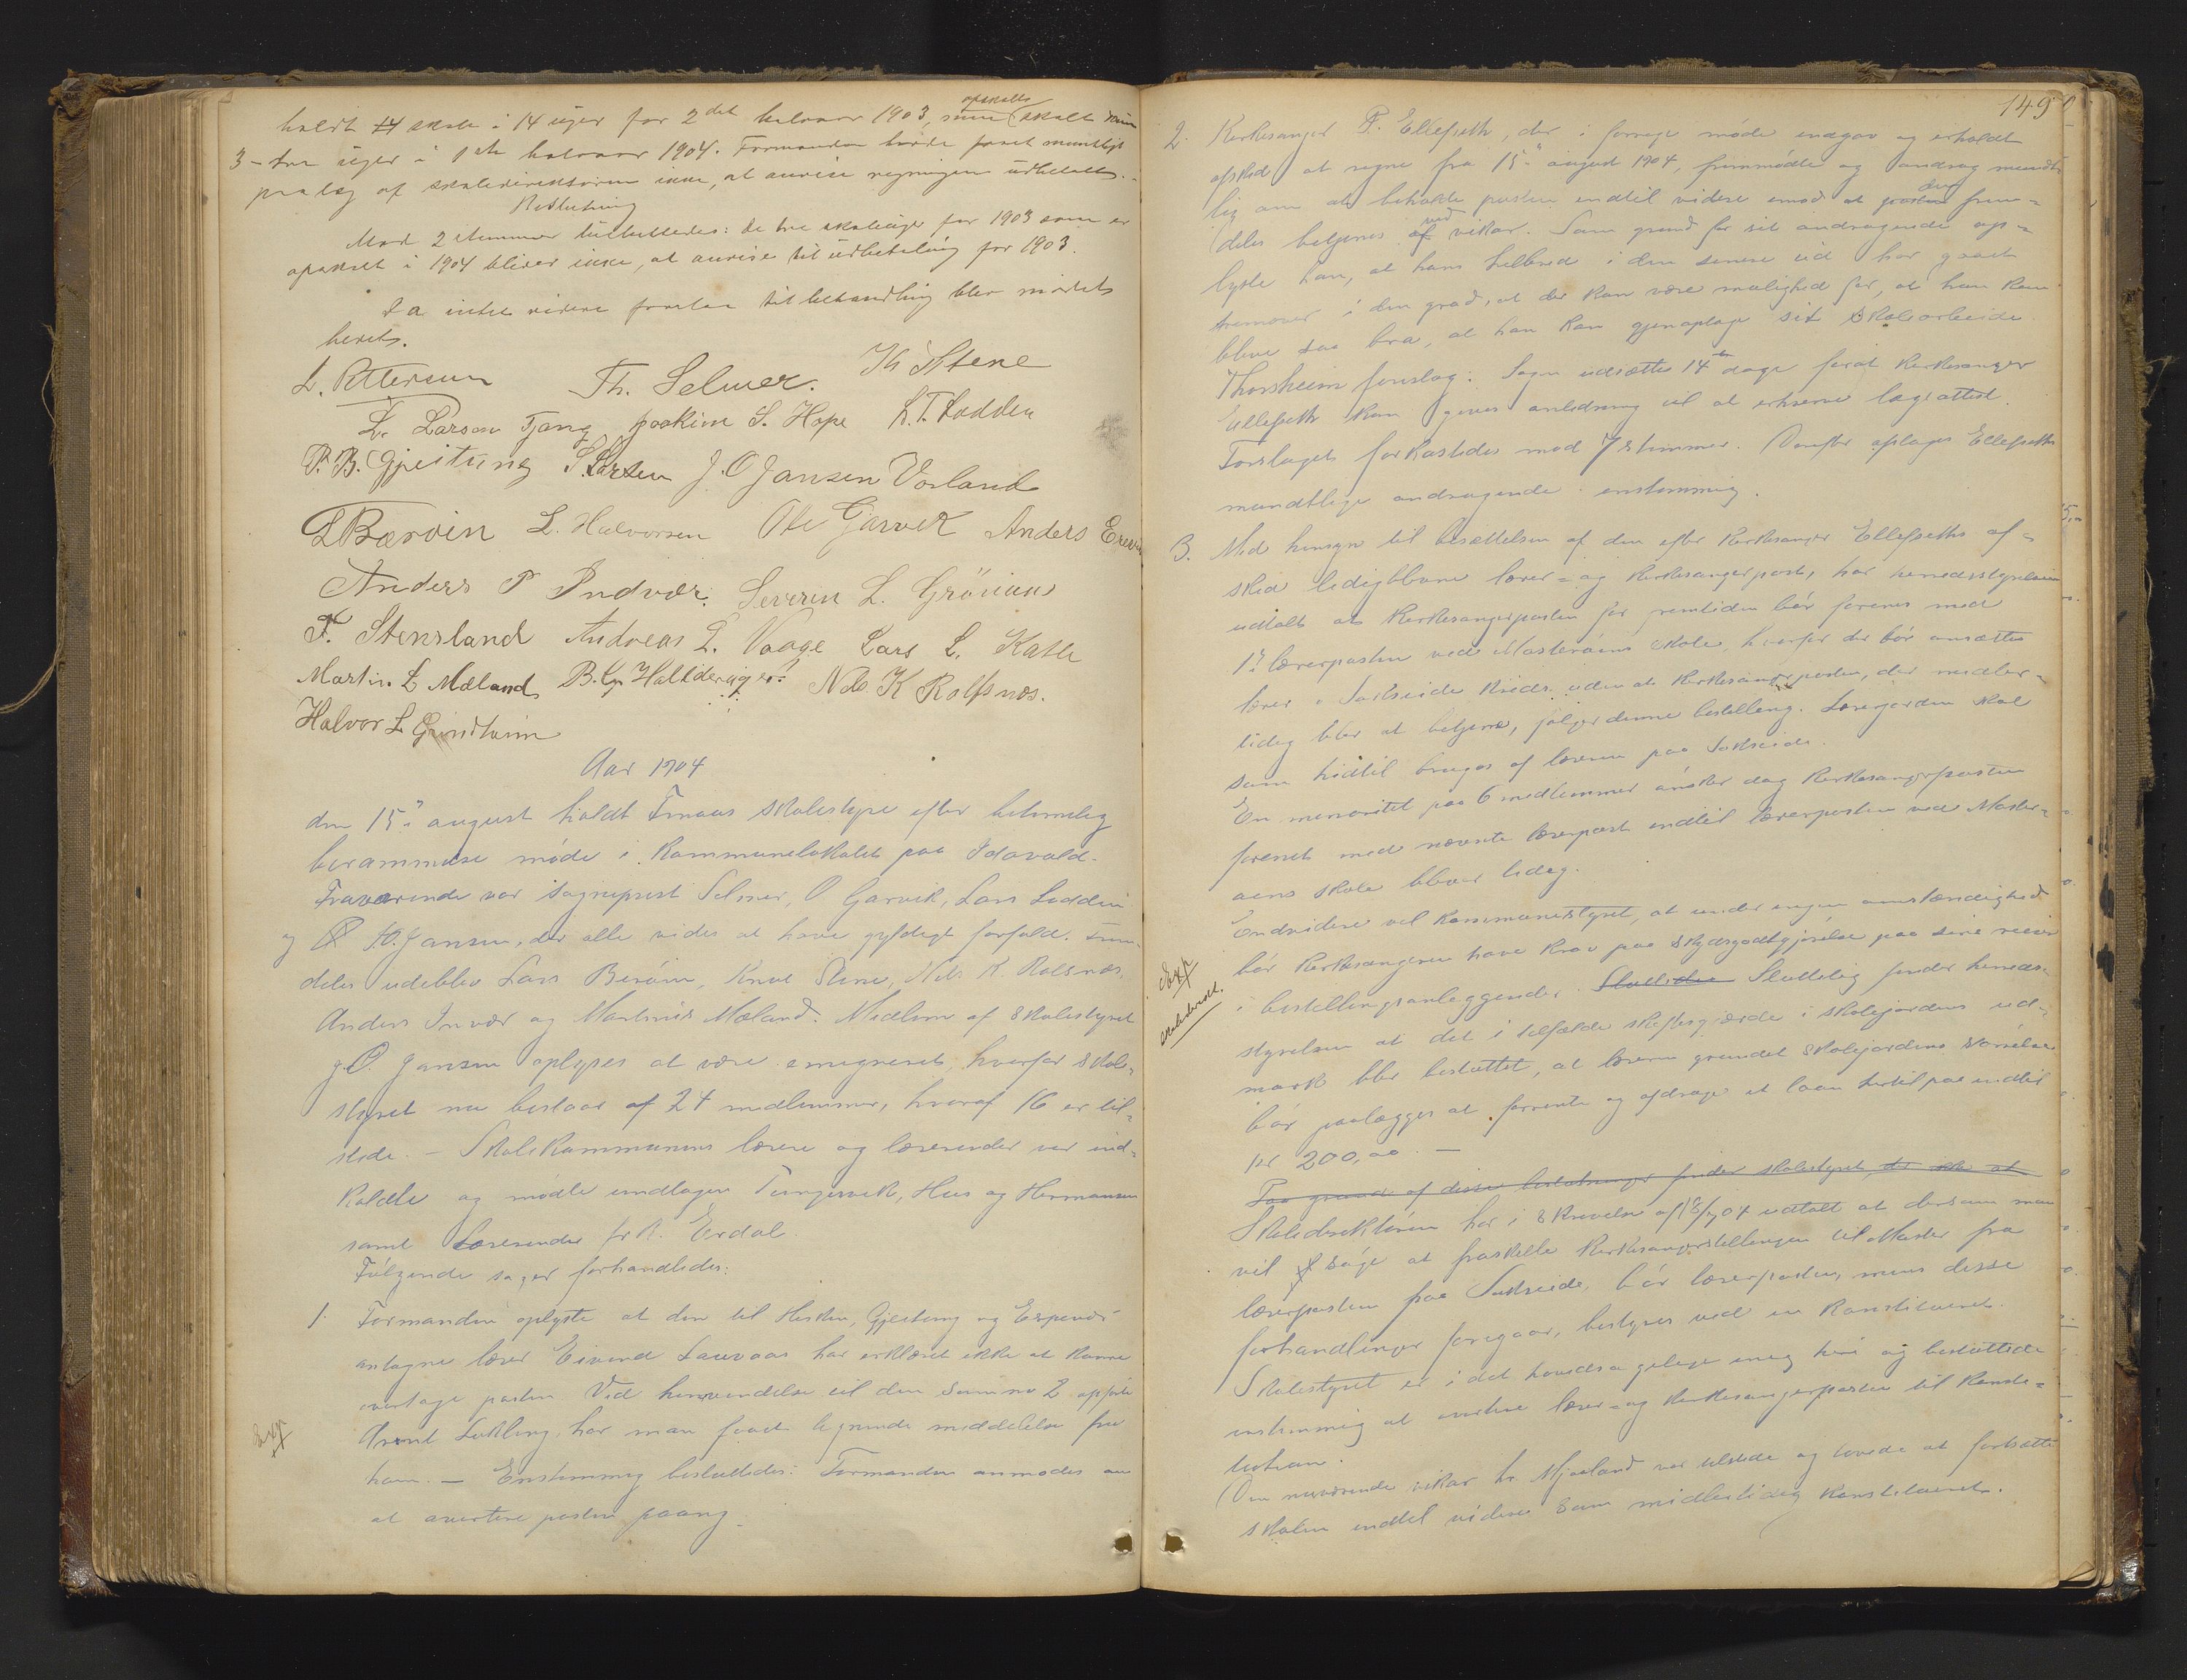 holdt 14 skole i 14 uger for 2det halvaar 1903, som opskalts skalt kun
3 - tre uger i 1ste halvaar 1904. Formanden havde faaet mundtligt
paalæg af skoledirektøren ikke, at anvise regningen udbetalt.
Beslutning
Mod 2 stemmer besluttedes: de tre skoleuger for 1903 som er
opsatset i 1904 bliver ikke, at anvise til udbetaling for 1903.
Da intet videre forelaa til behandling blev mødet
hevet.
L. Pettersen Th. Selmer. Kn Stene
L. Larsen Tjong Joakim S. Hope L. T. Lodden
P. B. Gjeitung S. Larsen J. O Jansen Vorland
L Bærøen L. Halvorsen Ole Garvik Anders
Anders P Indvær. Severin L. Grönnaas
F. Stensland Andreas L. Vaage Lars L. Katle
Martin L Mæland B. Hallderaiger Nils K Rolfsnæs.
Halvor L Grindheim
Aar 1904
den 15de august holdt Finaas skolestyre efter betimelig
berammelse møde i Kommunelokalet paa Idavold.
Fraværende var sogneprest Selmer, O Garvik, Lars Lodden
og J. O. Jansen, der alle vides at have gyldigt forfald. Frem-
deles udeblev Lars Berøen, Knut Stene, Nils K. Rolfsnæs,
Anders Invær og Martinus Mæland. Medlem af Skolestyret
J. O. Jansen oplyses at være emigreret, hvorfor skole-
styret nu bestaar af 24 medlemmer, hvoraf 16 er til-
stede. - Skolekommunens lærere og lærerinder var ind-
kaldte og mødte undtagen Tungesvik, Hus og Hermansen
samt Lærerinde frk. Erdal.
Følgende sager forhandledes:
1. Formanden oplyste at den til Hisken, Gjeitung og Espevær
antagne lærer Eivind Lauvaas har erklæret ikke at kunne
overtage posten. Ved henvendelse til den som no 2 opførte
Lokling, har man faaet lignende meddelelse fra
ham. - Enstemmig besluttedes: Formanden anmodes om
at avertere posten paany.
Exp
149
2. Kirkesanger P. Ellefseth, der i forrige møde indgav og erholdt
afsked at regne fra 15de august 1904, fremmødte og androg mundt-
lig om at beholde posten indtil videre imod at posten den frem-
deles betjenes af ved vikar. Som grund for sit andragende op-
lyste han, at hans helbred i den senere tid har gaaet
fremover i den grad, at der kan være mulighed for, at han kan
blive saa bra, at han kan gjenoptage sit skolearbeide.
Thorsheim foreslog: Sagen udsættes 14 dage forat Kirkesanger
Ellefseth kan gives anledning til at erhverve lægeattest.
Forslaget forkastedes mod 7 stemmer. Derefter optages Ellefseths
mundtlige andragende enstemmig.
3. Med hensyn til besættelsen af den efter Kirkesanger Ellefseths af-
sked ledigblevne lærer- og Kirkesangerpost, har herredsstyrelsen
udtalt at Kirkesangerposten for fremtiden bør forenes med
1ste lærerposten ved Mosterøens skole, hvorfor der bør ansættes
lærer i Sortseide kreds uden at Kirkesangerposten, der midler-
tidig blir at betjene, følger denne bestilling. Lærerjorden skal
som hidtil bruges af læreren paa Sokseide.
En minoritet paa 6 medlemmer ønsker dog Kirkesangerposten
forenet med nævnte lærerpost indtil lærerposten ved Moster-
øens skole bliver ledig.
Endvidere vil Kommunestyret, at under ingen omstændighed
bør kirkesangeren have krav paa Skydsgodtgjørelse paa sine reiser
i bestillingsanleggender. Sluttelig finder herreds-
styrelsen at det i tilfælde skiftesgjærde i skolejordens ud-
mark blir besluttet, at læreren grundet skolejordens størrelse
bør paalægges at forrente og afdrage et laan hertil paa indtil
kr 200,00. -
Paa grund af disse beslutninger finder skolestyret,
Skoledirektøren har i Skrivelse af 18/7 04 udtalt at dersom man
vil søge at fraskille Kirkesangerstillingen til Moster fra
lærerposten paa Sokseide, bør lærerposten, mens disse
forhandlinger foregaar, bestyres ved en Konstitueret.
Skolestyret er i det hovedsagelige enig heri og besluttede
enstemmig at avertere lærer- og Kirkesangerposten til Konsti-
tution.
(Den nuværende vikar hr. Mjæland var tilstede og lovede at fortsætte
skolen indtil videre som midlertidig konstitueret.
Exp